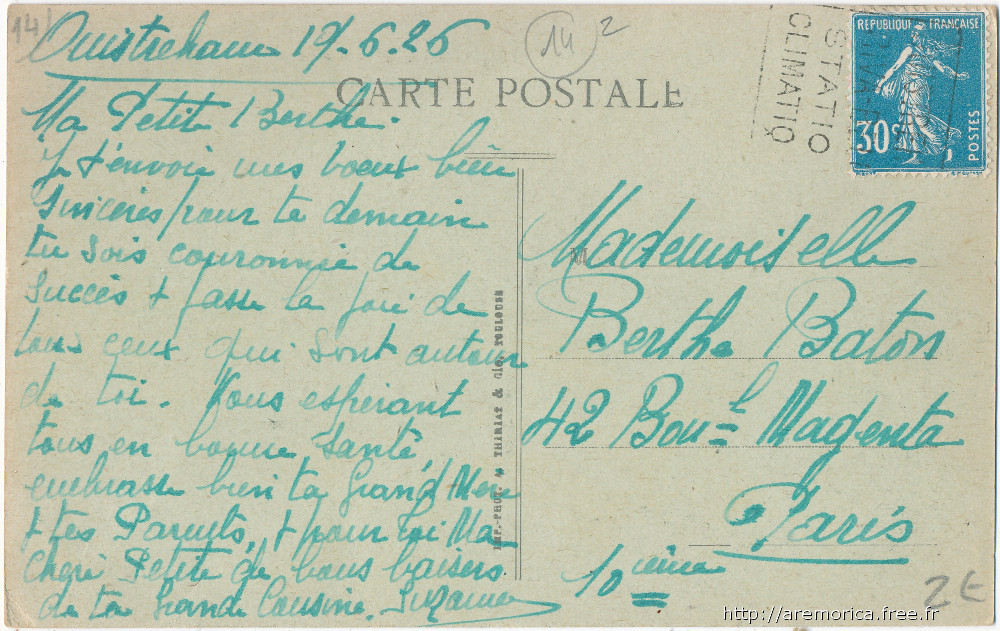 14
Ouistreham 19-6.26
14
2
CARTE POSTALE
STATIO
CLIMATIQ
REPUBLIQUE FRANÇAISE
30c
POSTES
Ma Petite Berthe.
Je t'envoie mes voeux bien
Sincères pour te demain
tu sois couronnée de
Succès + fasse la joie de
tous ceux qui sont autour
de toi. Vous espérant
tous en bonne Santé,
embrasse bien ta Grand'Mère
+ tes Parents, + pour toi Ma
Chère Petite de bons baisers
de ta Grande Cousine. Suzanne
IMP.-PHOT. THIRIAT & Cie, TOULOUSE
M
Mademoiselle
Berthe Baton
42 Boul Magenta
Paris
10 ième
2 €
http://aremorica.free.fr